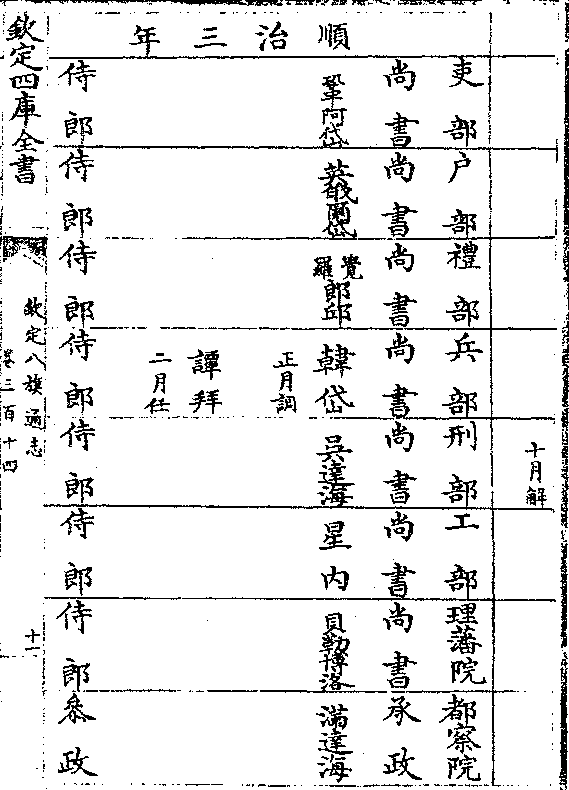 十月解
吏部 户部 禮部 兵部 刑部 工部 理藩院 都察院
尚書 尚書 尚書 尚書 尚書 尚書 尚書 承政
順治三年
鞏阿岱 英俄爾岱 覺羅郎邱 韓岱 吳達海 星内 貝勒博洛 滿達海
正月調
譚拜
二月任
侍郎 侍郎 侍郎 侍郎 侍郎 侍郎 侍郎 叅政
欽定四庫全書
欽定八旗通志
卷三百十四
十一